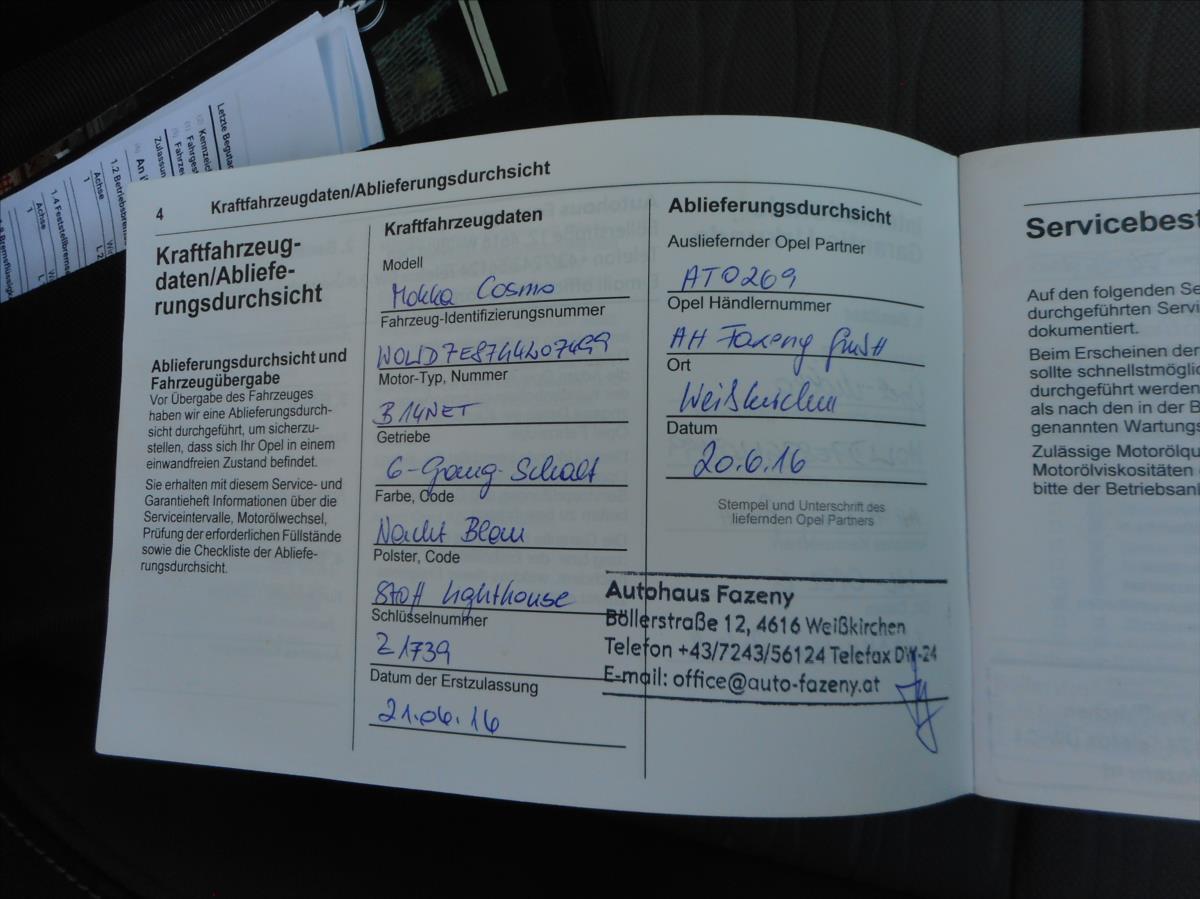 Letzte Begutac
Kennzei
Fahrges
Fahrze
Zulassun
1.2 Betriebsbrems
Achse
1
1.4 Feststellbremse
Achse
1
4 Kraftfahrzeugdaten/Ablieferungsdurchsicht
Kraftfahrzeug-
daten/Abliefe-
rungsdurchsicht
Ablieferungsdurchsicht und
Fahrzeugübergabe
Vor Übergabe des Fahrzeuges
haben wir eine Ablieferungsdurch-
sicht durchgeführt, um sicherzu-
stellen, dass sich Ihr Opel in einem
einwandfreien Zustand befindet.
Sie erhalten mit diesem Service- und
Garantieheft Informationen über die
Serviceintervalle, Motorölwechsel,
Prüfung der erforderlichen Füllstände
sowie die Checkliste der Abliefe-
rungsdurchsicht.
Kraftfahrzeugdaten
Modell
Mokka Cosmo
Fahrzeug-Identifizierungsnummer
Motor-Typ, Nummer
B14NET
Getriebe
6-Gang-Schalt
Farbe, Code
Nacht Blau
Polster, Code
Stoff Lighthouse
Schlüsselnummer
Z1739
Datum der Erstzulassung
21.06.16
Ablieferungsdurchsicht
Ausliefernder Opel Partner
AT0269
Opel Händlernummer
AH Fazeny GmbH
Ort
Weißkirchen
Datum
20.6.16
Stempel und Unterschrift des
liefernden Opel Partners
Autohaus Fazeny
Böllerstraße 12, 4616 Weißkirchen
Telefon +43/7243/56124 Telefax DW-24
E-mail: office@auto-fazeny.at
Servicebest
Auf den folgenden Se
durchgeführten Servi
dokumentiert.
Beim Erscheinen der
sollte schnellstmöglic
durchgeführt werden
als nach den in der B
genannten Wartungs
Zulässige Motorölqu
Motorölviskositäten
bitte der Betriebsanl